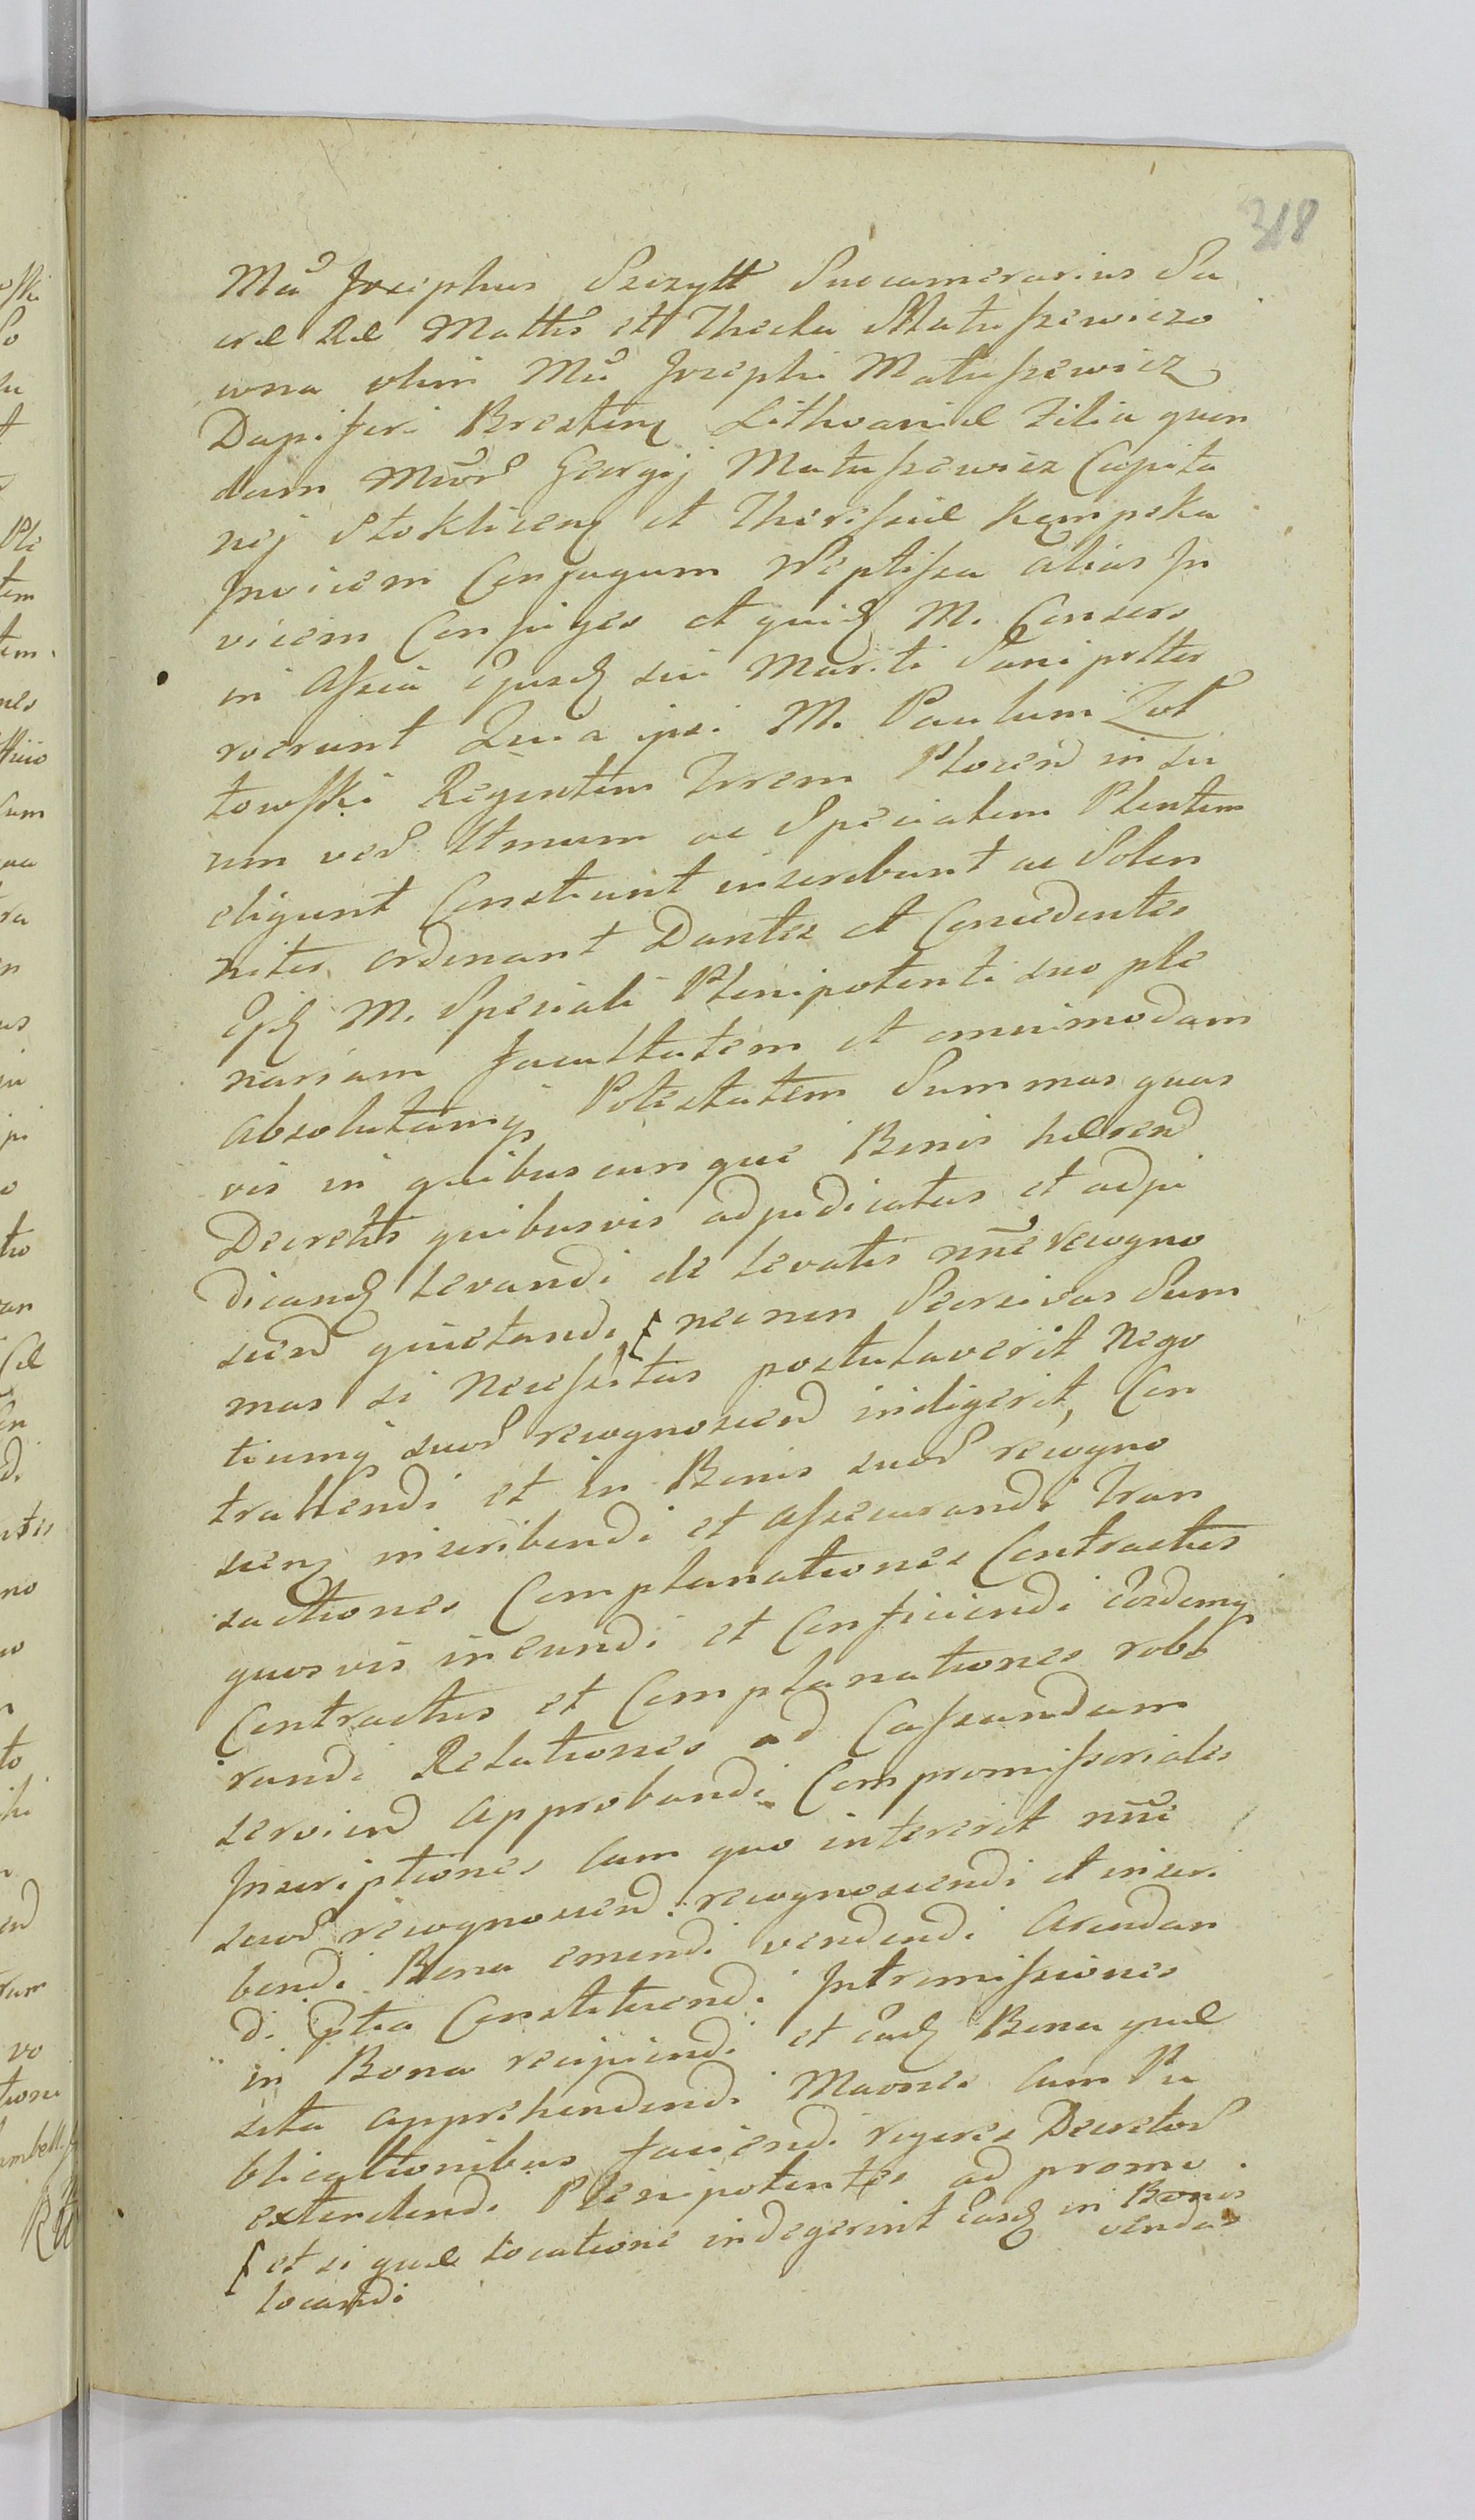 318
Mci Josephus Szczytt Succamerarius Sa
cræ Ræ Mattis et Thecla Matuszewiczo
wna olim Mci Josephi Matuszewicz
Dapiferi Brestens Lithvaniæ Filia quon
dam Mcor Georgij Matuszewicz Capita
nej Stoklicens et Theressiæ Kempska
Invicem Conjugum Neptissa alias In
vicem Conjuges et quid M. Consors
in Assia Ejusd sui Mariti Sani
roverunt Quia ipsi M. Paulum Zot
towski Regentem Trrem Plocen in su
um ver Ltmum ac Specialem Plentem
eligunt Constiunt inscribunt ac Solen
niter ordinant Dantes et Concedentes
Ejd M. Speciali Plenipotenti suo ple
nariam facultatem et omnimodam
absolutamq Potestatem Summas quas
vis in quibuscunque Bonis hæren
Decretis quibusvis adjudicatas et adju
dicand levandi de levatis nne recogno
scen quietandi necnon Scisivas Sum
mas si Necessitas postulaverit Nego
tiumq suor recognoscen indigerit, Con
trahendi et in Bonis suor recogno
scen inscribendi et assecurandi Tran
sactiones Complanationes Contractus
quosvis ineundi et Conficiendi eosdemq
Contractus et Complanationes robo
randi Relationes ad Cassandam
servien approbandi Compromissoriales
Inscriptiones cum quo intererit nne
suor recognoscen recognoscendi et inscri
bendi Bona emendi vendendi Arendan
di ptia Constituendi Intromissiones
in Bona recipiendi et Ead Bona quæ
sita apprehendendi Maones cum Pu
blicationibus faciendi rigores Decretor
extendendi Plenipotentes ad promo
et si quæ locatione indegerint Easd in Bonis
vendas
locandi